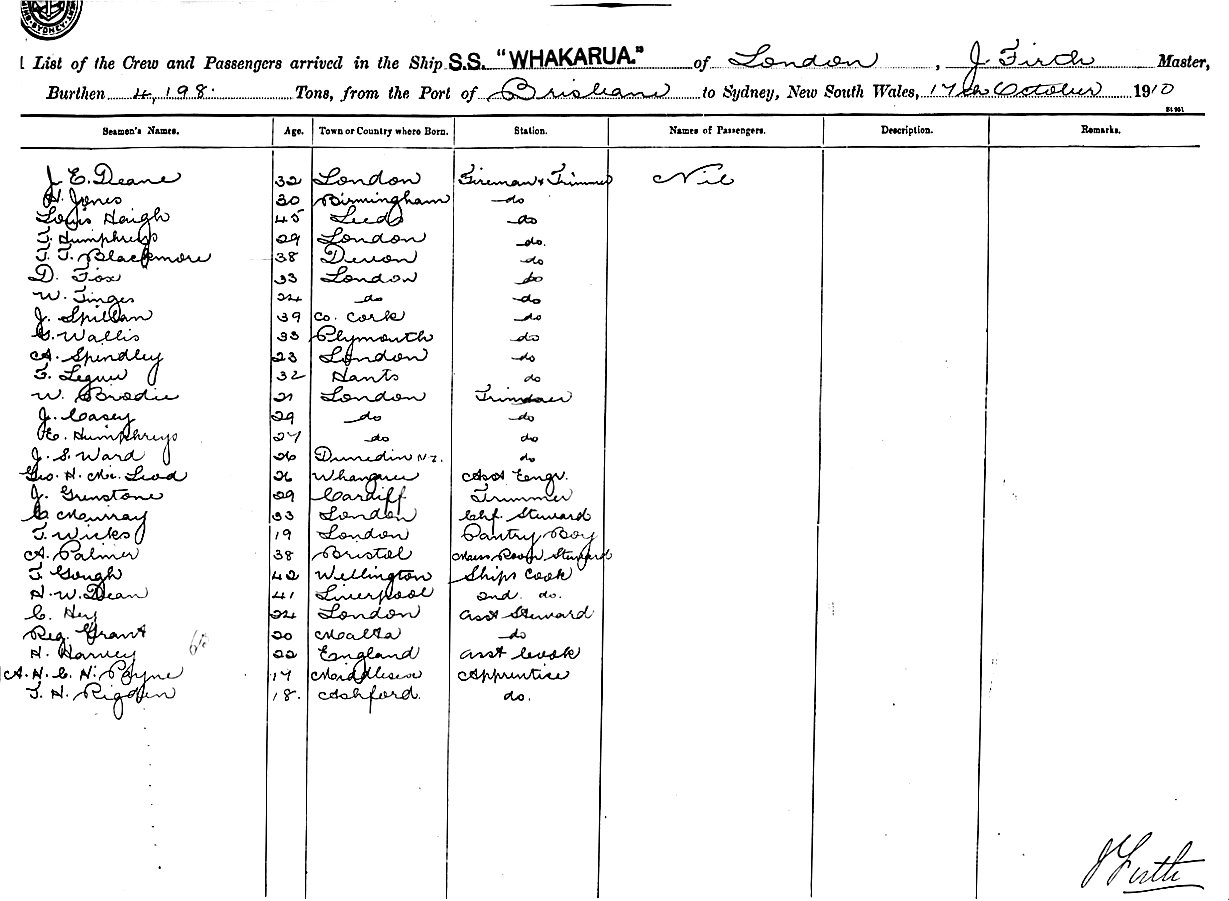 SYDNEY
List of the Crew and Passengers arrived in the Ship S.S. "WHAKARUA." of London, J Firth Master,
Burthen 4,198 Tons, from the Port of Brisbane to Sydney, New South Wales, 17th October 1910
Seamen's Names. Age. Town or Country where Born. Station. Names of Passengers. Description. Remarks.
J. E. Deane 32 London Fireman & Trimmer Nil
H. Jones 30 Birmingham do
Louis Haigh 45 Leeds do
T. Humphreys 29 London do.
T. T. Blackmore 38 Devon do
D. Fox 33 London do
W. 24 do do
J. Spillan 39 Co. Cork do
G. Wallis 33 Plymouth do
A. Spindley 23 London do
F. 32 Hants do
W. Brodie 21 London
J. Casey 29 do do
E. Humphreys 27 do do
J. S. Ward 26 Dunedin N.Z. do
Geo. H. Mc. Leod 26 Whangarei Asst Engr.
J. Grinstone 29 Cardiff Trimmer
C Murray 33 London Chf. Steward
T. Wicks 19 London Pantry Boy
A. Palmer 38 Bristol Mess Room Steward
T. Gough 42 Wellington Ships Cook
H. W. Dean 41 Liverpool 2nd. do.
C. Hey 24 London Asst Steward
Reg. Grant 20 Malta do
H. Harvey 22 England Asst Cook
A. H. C. H. Payne 17 Middlesex Apprentice
T. H. Rigden 18. Ashford. do.
J Firth